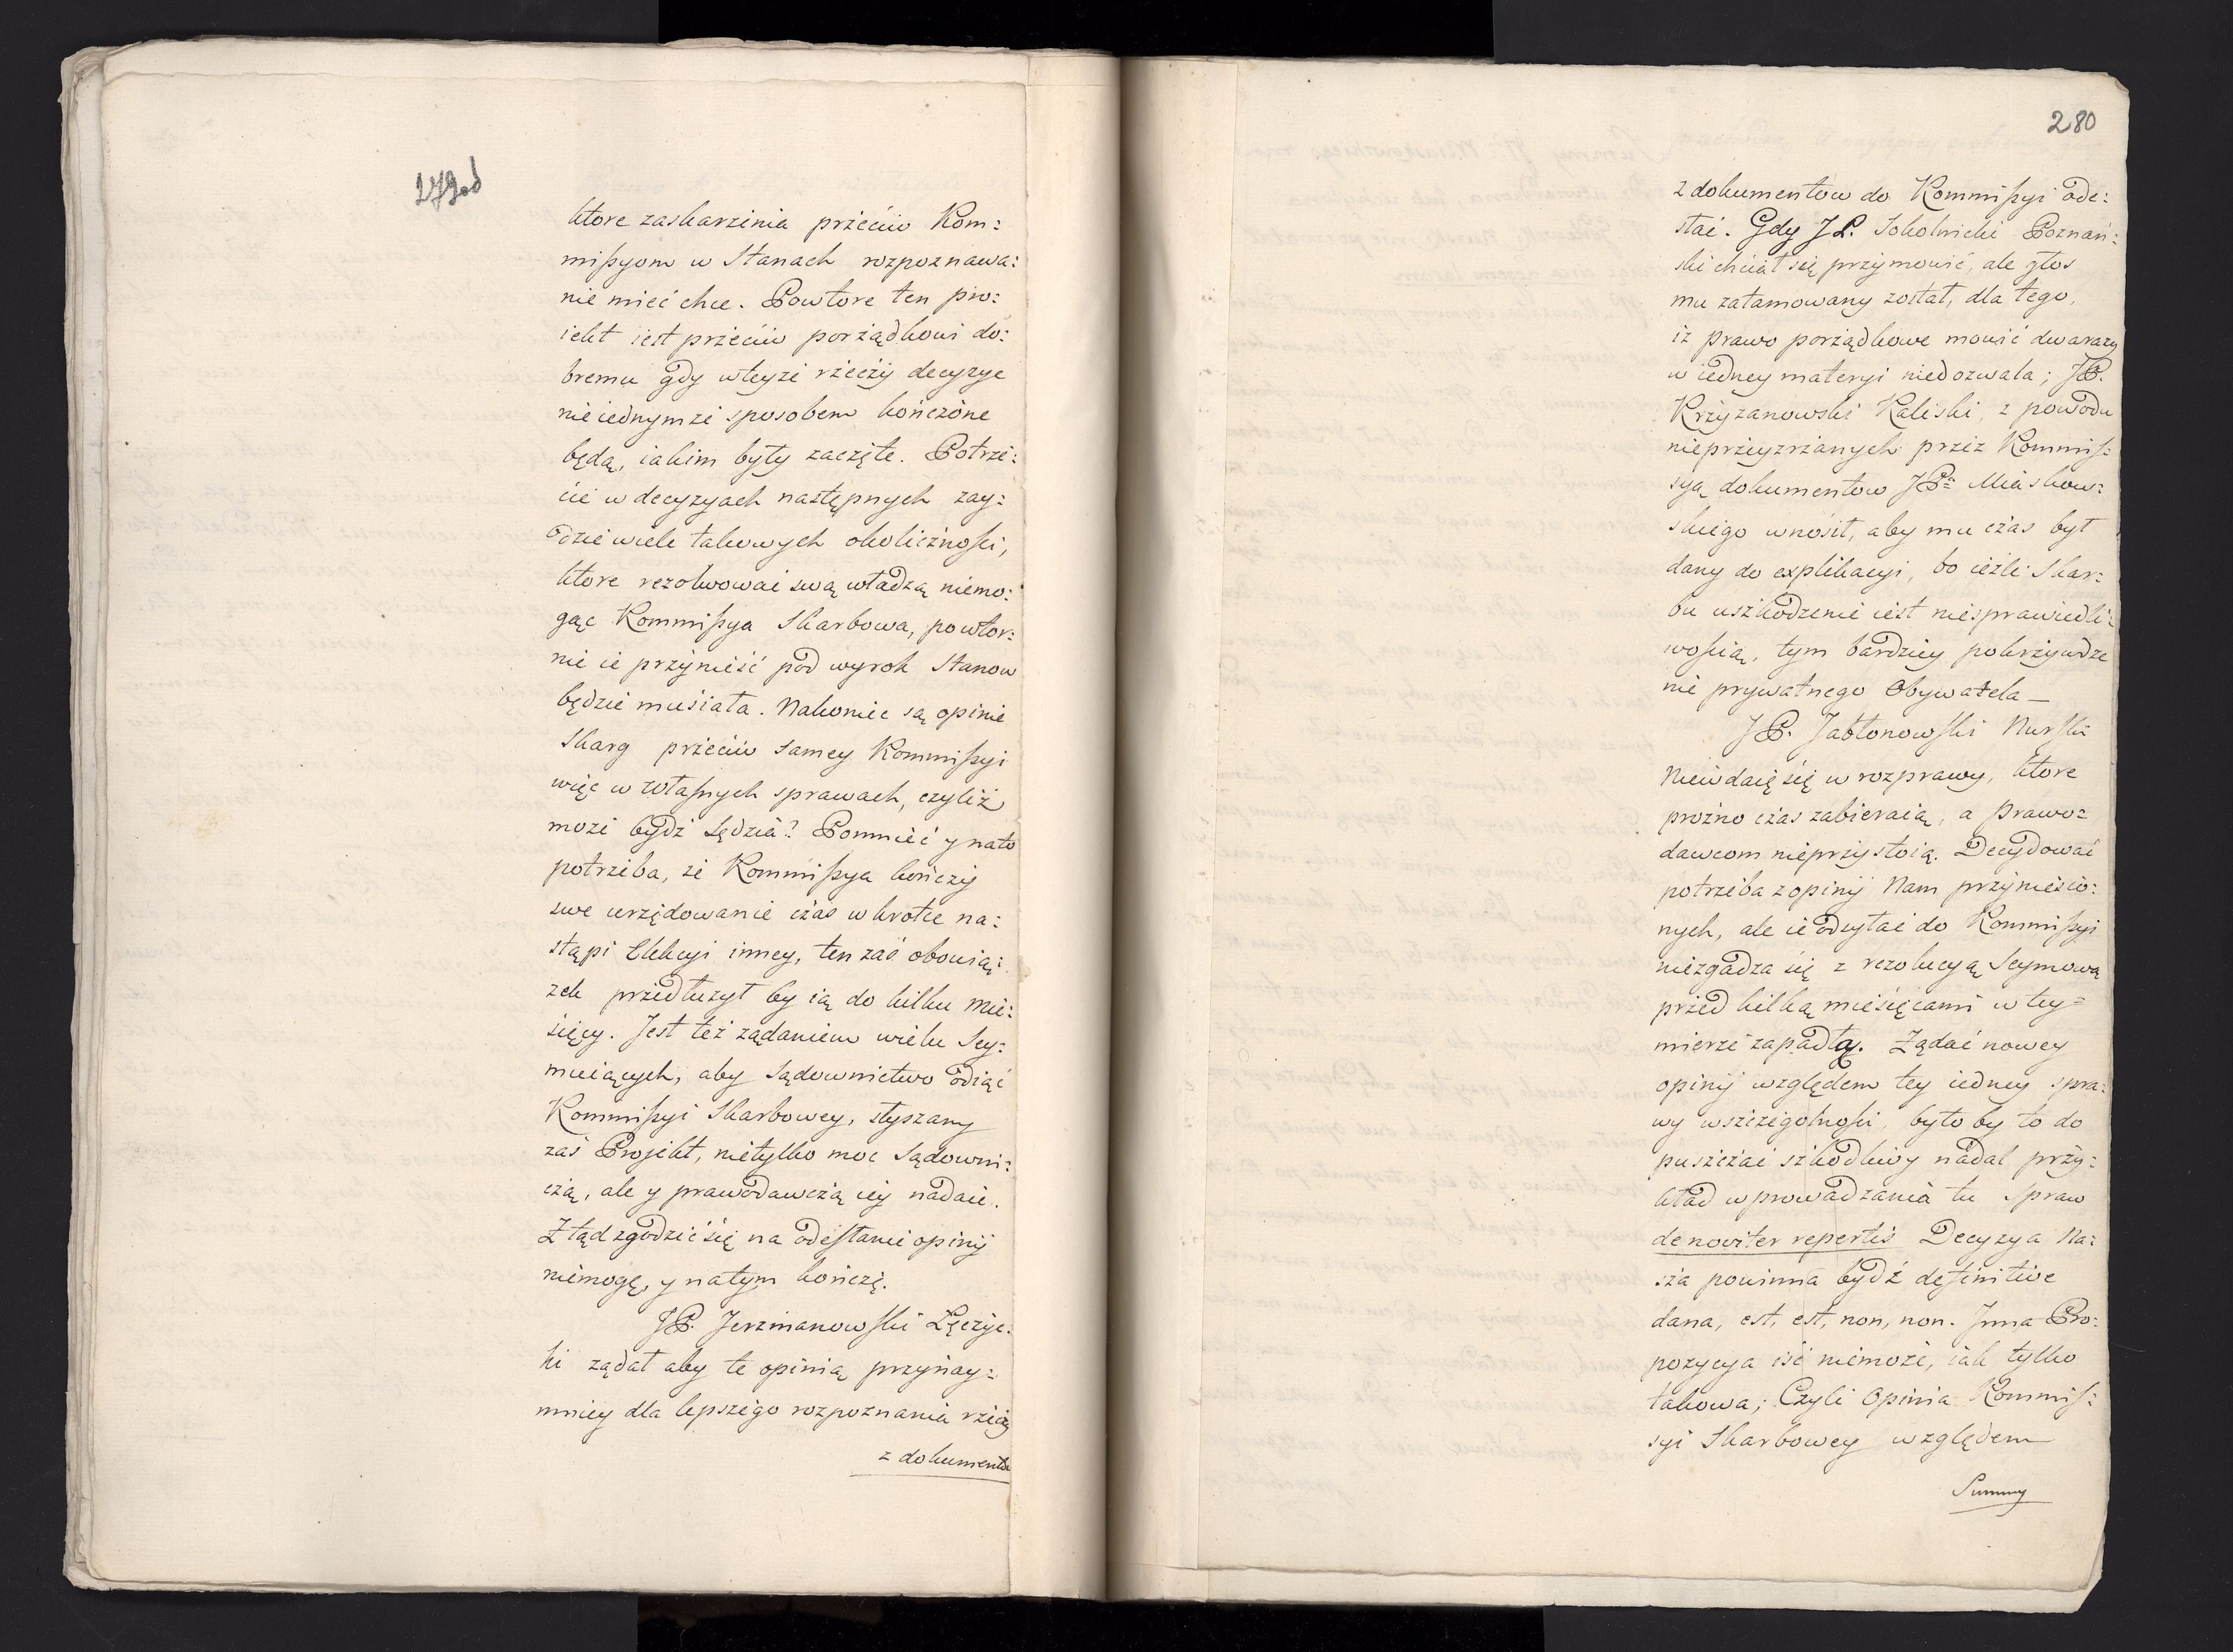 279od
ktore zaskarżenia przećiw Kom:
mißyom w Stanach rozpoznawa:
nie mieć chce. Powtore ten pro:
iekt iest przećiw porżądkowi do:
bremu gdy wteyże rżeczy decyzye
nieiednymże sposobem kończone
będą, iakim były zaczęte. Potrze:
cie w decyzyach następnych zay:
dzie wiele takowych okolicżnośći,
ktore rezolwować swą władzą niemo:
gąc Kommißya Skarbowa, powtor:
nie ie przynieść pod wyrok Stanow
będzie musiała. Nakoniec są opinie
Skarg przećiw samey Kommißyi
więc w własnych sprawach, czyliż
może bydź Sędzia? Pomnieć y nato
potrzeba, że Kommißya kończy
swe urzędowanie czas w krotce na:
stąpi Elekcyi inney, ten zaś obowią:
zek przedłużył by ią do kilku mie:
sięcy. Jest też ządaniem wielu Sey:
muiących, aby Sądownictwo odiąć
Kommißyi Skarbowey, słyszany
zaś Projekt, nietylko moc Sądowni:
czą, ale y prawodawczą iey nadaie.
Z tąd zgodzić się na odesłanie opinij
niemogę, y natym kończę.
JP. Jerzmanowski Łęczyc:
ki ządał aby te opinią przynay:
mniey dla lepszego rozpoznania rzeczy
z dokumentow
280
z dokumentow do Kommißyi ode:
słać. Gdy JP. Sokolnicki Poznań:
ski chciał się przymowić, ale głos
mu zatamowany został, dla tego,
iż prawo porżądkowe mowić dwarazy
w iedney materyi niedozwala; JP.
Krzyżanowski Kaliski, z powodu
nieprzeyzrżanych przez Kommis:
syą dokumentow JPa Miaskow:
skiego wnosił, aby mu czas był
dany do explikacyi, bo ieżli Skar:
bu uszkodzenie iest niesprawiedli:
wośćią, tym bardziey pokrzywdze
nie prywatnego Obywatela —
JP. Jabłonowski Nurski
Niewdaię się w rozprawy, ktore
prożno czas zabieraią, a Prawo:
dawcom nieprzystoią. Decydować
potrzeba z opinij Nam przyniesio:
nych, ale ie odsyłać do Kommißyi
niezgadza się z rezolucyą Seymową
przed kilką miesięcami w tey:
mierze zapadłą. Żądać nowey
opinij względem tey iedney spra:
wy wszczegolnośći, byłoby to do
puszczać szkodliwy nadal przy:
kład wprowadzania tu Spraw
de noviter repertis Decyzya Na:
sza powinna bydź definitive
dana, est, est, non, non. Jnna Pro:
pozycya iść niemoże, iak tylko
takowa; Czyli Opinia Kommis:
syi Skarbowey względem
Summy